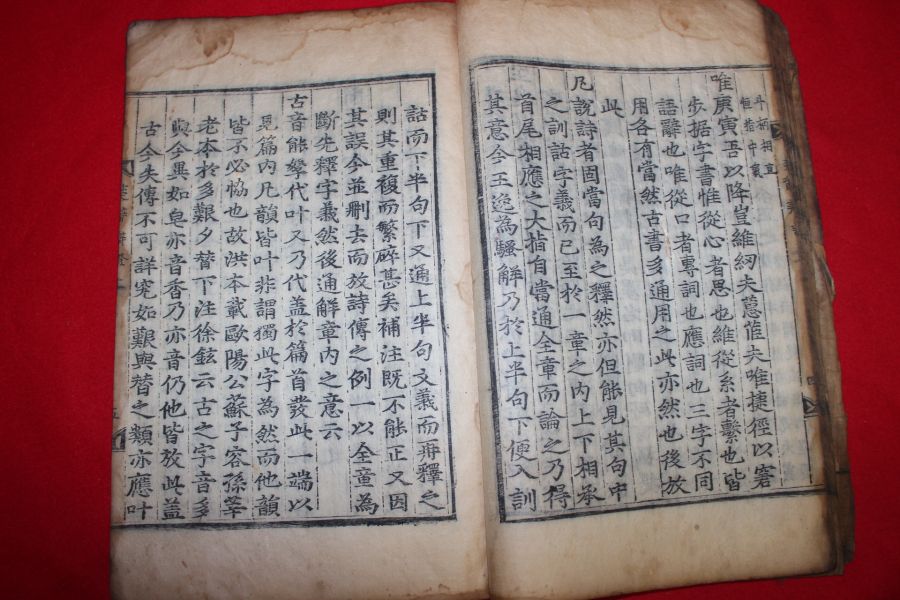 斗柄相直
恒指中氣
唯庚寅吾以降豈維紉夫蕙茝夫唯捷徑以窘
步据字書惟從心者思也維從糸者繫也皆
語辭也唯從口者專詞也應詞也三字不同
用各有當然古書多通用之此亦然也後放
此
凡說詩者固當句為之釋然亦但能見其句中
之訓詁字義而已至於一章之內上下相承
首尾相應之大指自當通全章而論之乃得
其意今王逸為騷解乃於上半句下便入訓
詁而下半句下又通上半句文義而再釋之
則其重復而繁碎甚矣補注既不能正又因
其誤今並刪去而放詩傳之例一以全章為
斷先釋字義然後通解章內之意云
古音能孥代叶又乃代盖於篇首發此一端以
見篇內凡韻皆叶非謂獨此字為然而他韻
皆不必恊也故洪本載歐陽公蘇子容孫莘
老本於多艱夕替下注徐鉉云古之字音多
與今異如皂亦音香乃亦音仍他皆放此盖
古今失傳不可詳究如艱與替之類亦應叶